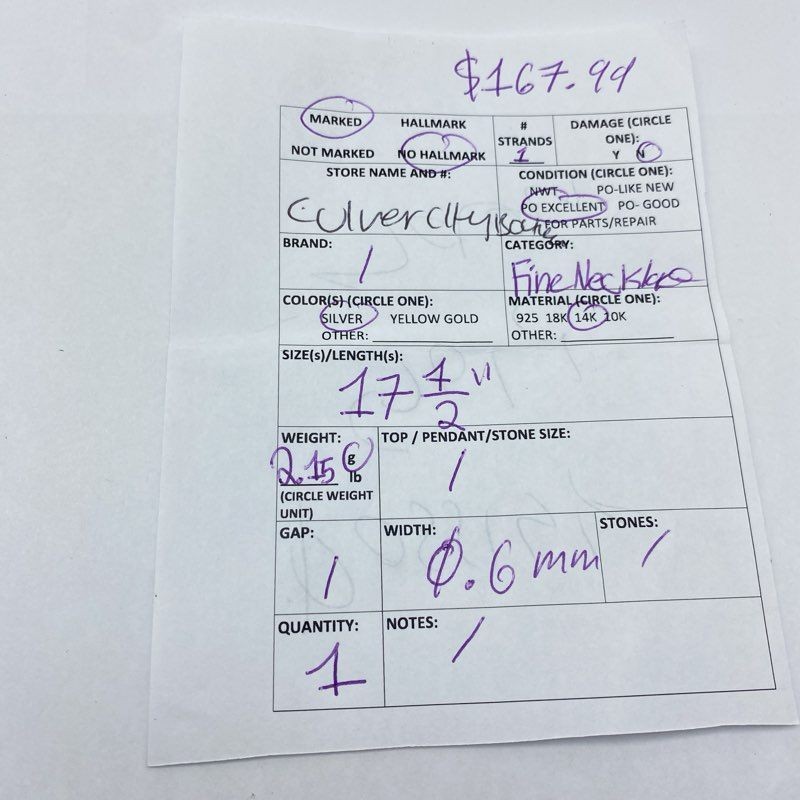 $167.94
MARKED HALLMARK
NOT MARKED NO HALLMARK
# STRANDS
1
DAMAGE (CIRCLE ONE):
Y N
STORE NAME AND #:
Culver City
CONDITION (CIRCLE ONE):
NWT PO-LIKE NEW
PO EXCELLENT PO- GOOD
FOR PARTS/REPAIR
BRAND:
/
CATEGORY:
Fine Necklace
COLOR(S) (CIRCLE ONE):
SILVER YELLOW GOLD
OTHER:
MATERIAL (CIRCLE ONE):
925 18K 14K 10K
OTHER:
SIZE(s)/LENGTH(s):
17 1/2"
WEIGHT:
2.15 g
lb
(CIRCLE WEIGHT
UNIT)
TOP / PENDANT/STONE SIZE:
/
GAP:
/
WIDTH:
0.6 mm
STONES:
/
QUANTITY:
1
NOTES:
/